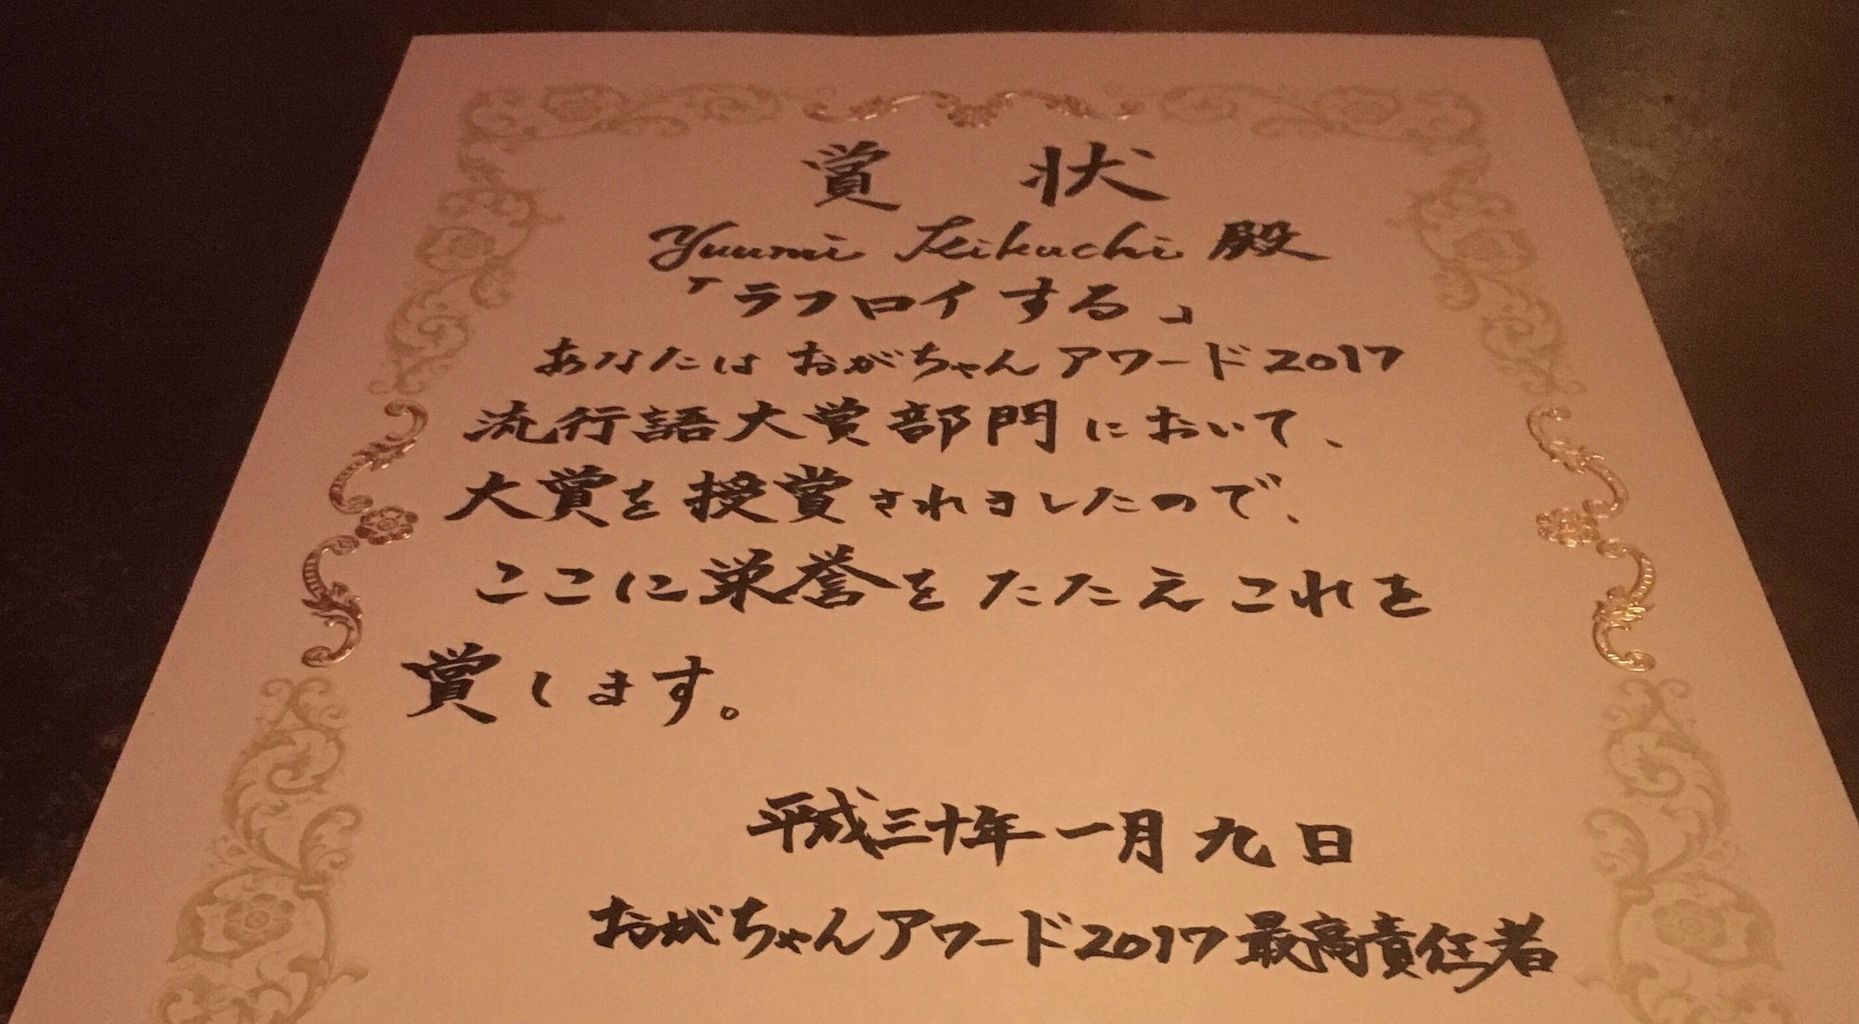 賞状
Yuumi Keikuchi 殿
「ラフロイする」
あなたは おがちゃんアワード2017
流行語大賞部門において、
大賞を授賞されましたので、
ここに栄誉をたたえこれを
賞します。
平成三十年一月九日
おがちゃんアワード2017最高責任者